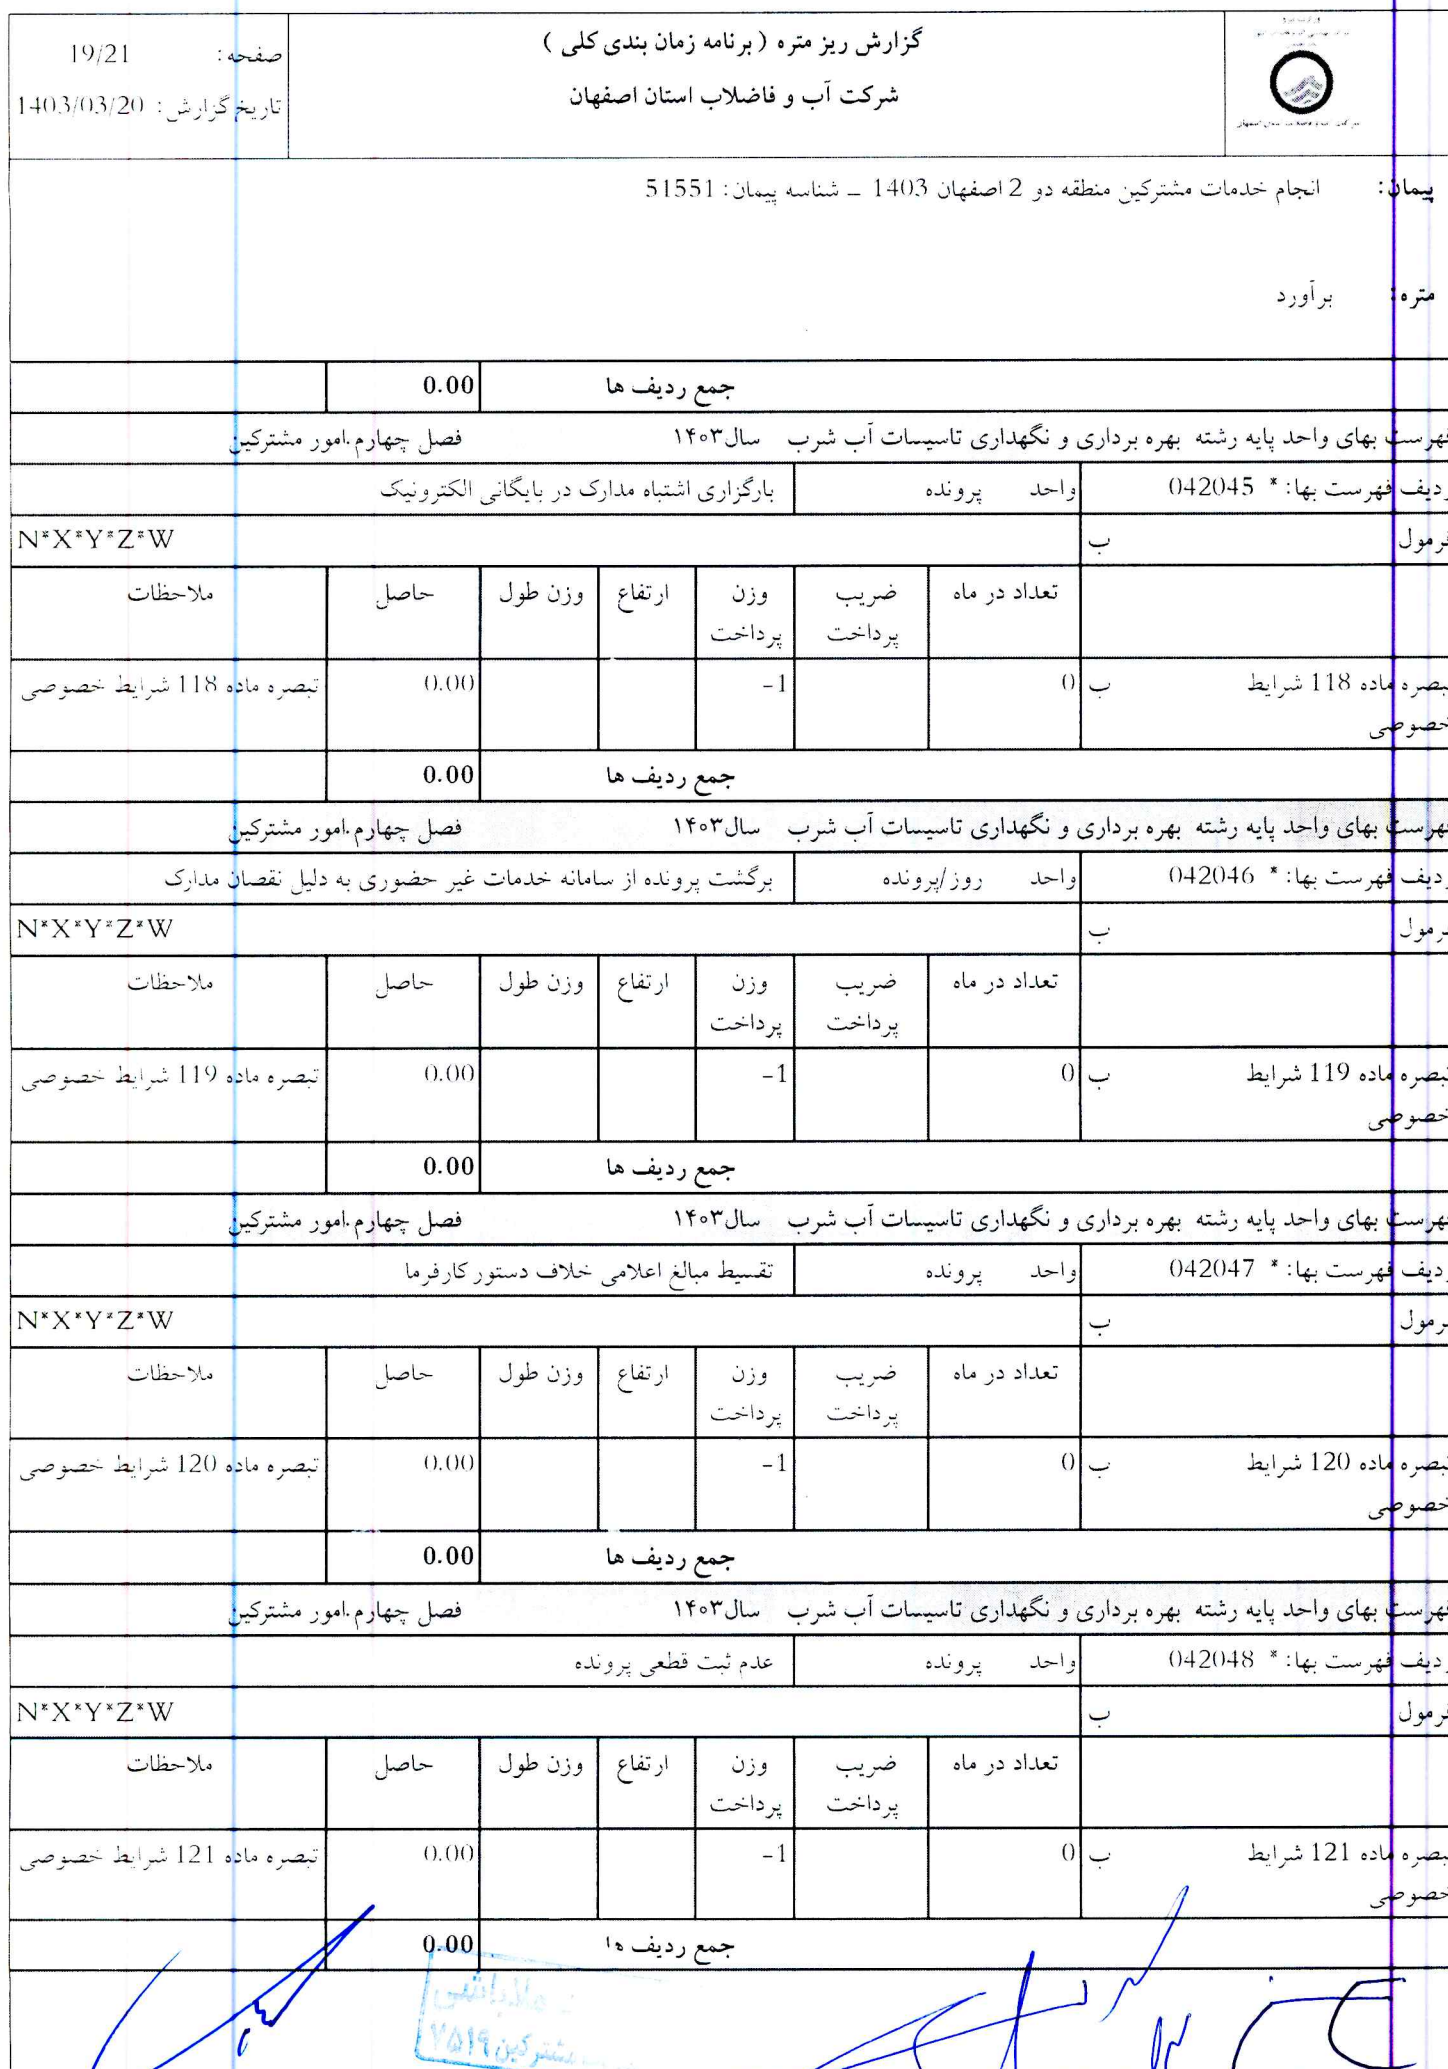 گزارش ریز متره ( برنامه زمان بندی کلی )
شرکت آب و فاضلاب استان اصفهان
صفحه: 19/21
تاریخ گزارش: 1403/03/20
پیمان: انجام خدمات مشترکین منطقه دو 2 اصفهان 1403 - شناسه پیمان: 51551
متره: برآورد
جمع ردیف ها 0.00
فهرست بهای واحد پایه رشته بهره برداری و نگهداری تاسیسات آب شرب سال۱۴۰۳ فصل چهارم.امور مشترکین
ردیف فهرست بها: * 042045 واحد پرونده بارگزاری اشتباه مدارک در بایگانی الکترونیک
فرمول ب N*X*Y*Z*W
تعداد در ماه ضریب وزن ارتفاع وزن طول حاصل ملاحظات
پرداخت پرداخت
تبصره ماده 118 شرایط ب 0 -1 0.00 تبصره ماده 118 شرایط خصوصی
خصوصی
جمع ردیف ها 0.00
فهرست بهای واحد پایه رشته بهره برداری و نگهداری تاسیسات آب شرب سال۱۴۰۳ فصل چهارم.امور مشترکین
ردیف فهرست بها: * 042046 واحد روز/پرونده برگشت پرونده از سامانه خدمات غیر حضوری به دلیل نقصان مدارک
فرمول ب N*X*Y*Z*W
تعداد در ماه ضریب وزن ارتفاع وزن طول حاصل ملاحظات
پرداخت پرداخت
تبصره ماده 119 شرایط ب 0 -1 0.00 تبصره ماده 119 شرایط خصوصی
خصوصی
جمع ردیف ها 0.00
فهرست بهای واحد پایه رشته بهره برداری و نگهداری تاسیسات آب شرب سال۱۴۰۳ فصل چهارم.امور مشترکین
ردیف فهرست بها: * 042047 واحد پرونده تقسیط مبالغ اعلامی خلاف دستور کارفرما
فرمول ب N*X*Y*Z*W
تعداد در ماه ضریب وزن ارتفاع وزن طول حاصل ملاحظات
پرداخت پرداخت
تبصره ماده 120 شرایط ب 0 -1 0.00 تبصره ماده 120 شرایط خصوصی
خصوصی
جمع ردیف ها 0.00
فهرست بهای واحد پایه رشته بهره برداری و نگهداری تاسیسات آب شرب سال۱۴۰۳ فصل چهارم.امور مشترکین
ردیف فهرست بها: * 042048 واحد پرونده عدم ثبت قطعی پرونده
فرمول ب N*X*Y*Z*W
تعداد در ماه ضریب وزن ارتفاع وزن طول حاصل ملاحظات
پرداخت پرداخت
تبصره ماده 121 شرایط ب 0 -1 0.00 تبصره ماده 121 شرایط خصوصی
خصوصی
جمع ردیف ها 0.00
ملاباشی
مشترکین ۷۵۱۹